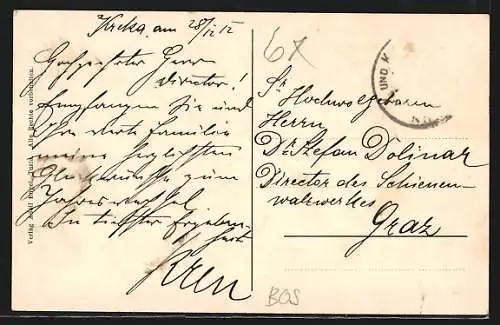 Kreka, am 28/12 12
Hochgeehrter Herr
Director!
Empfangen Sie und
Ihre werte Familie
meine herzlichsten
Glückwünsche zum
Jahreswechsel
In tiefster Ergeben-
heit
Kren
Verlag Adolf
Alle Rechte vorbehalten.
67
UND K
Sr Hochwolgeboren
Herrn
Dr Stefan Dolinar
Director des Schienen-
walzwerkes
Graz
BOS